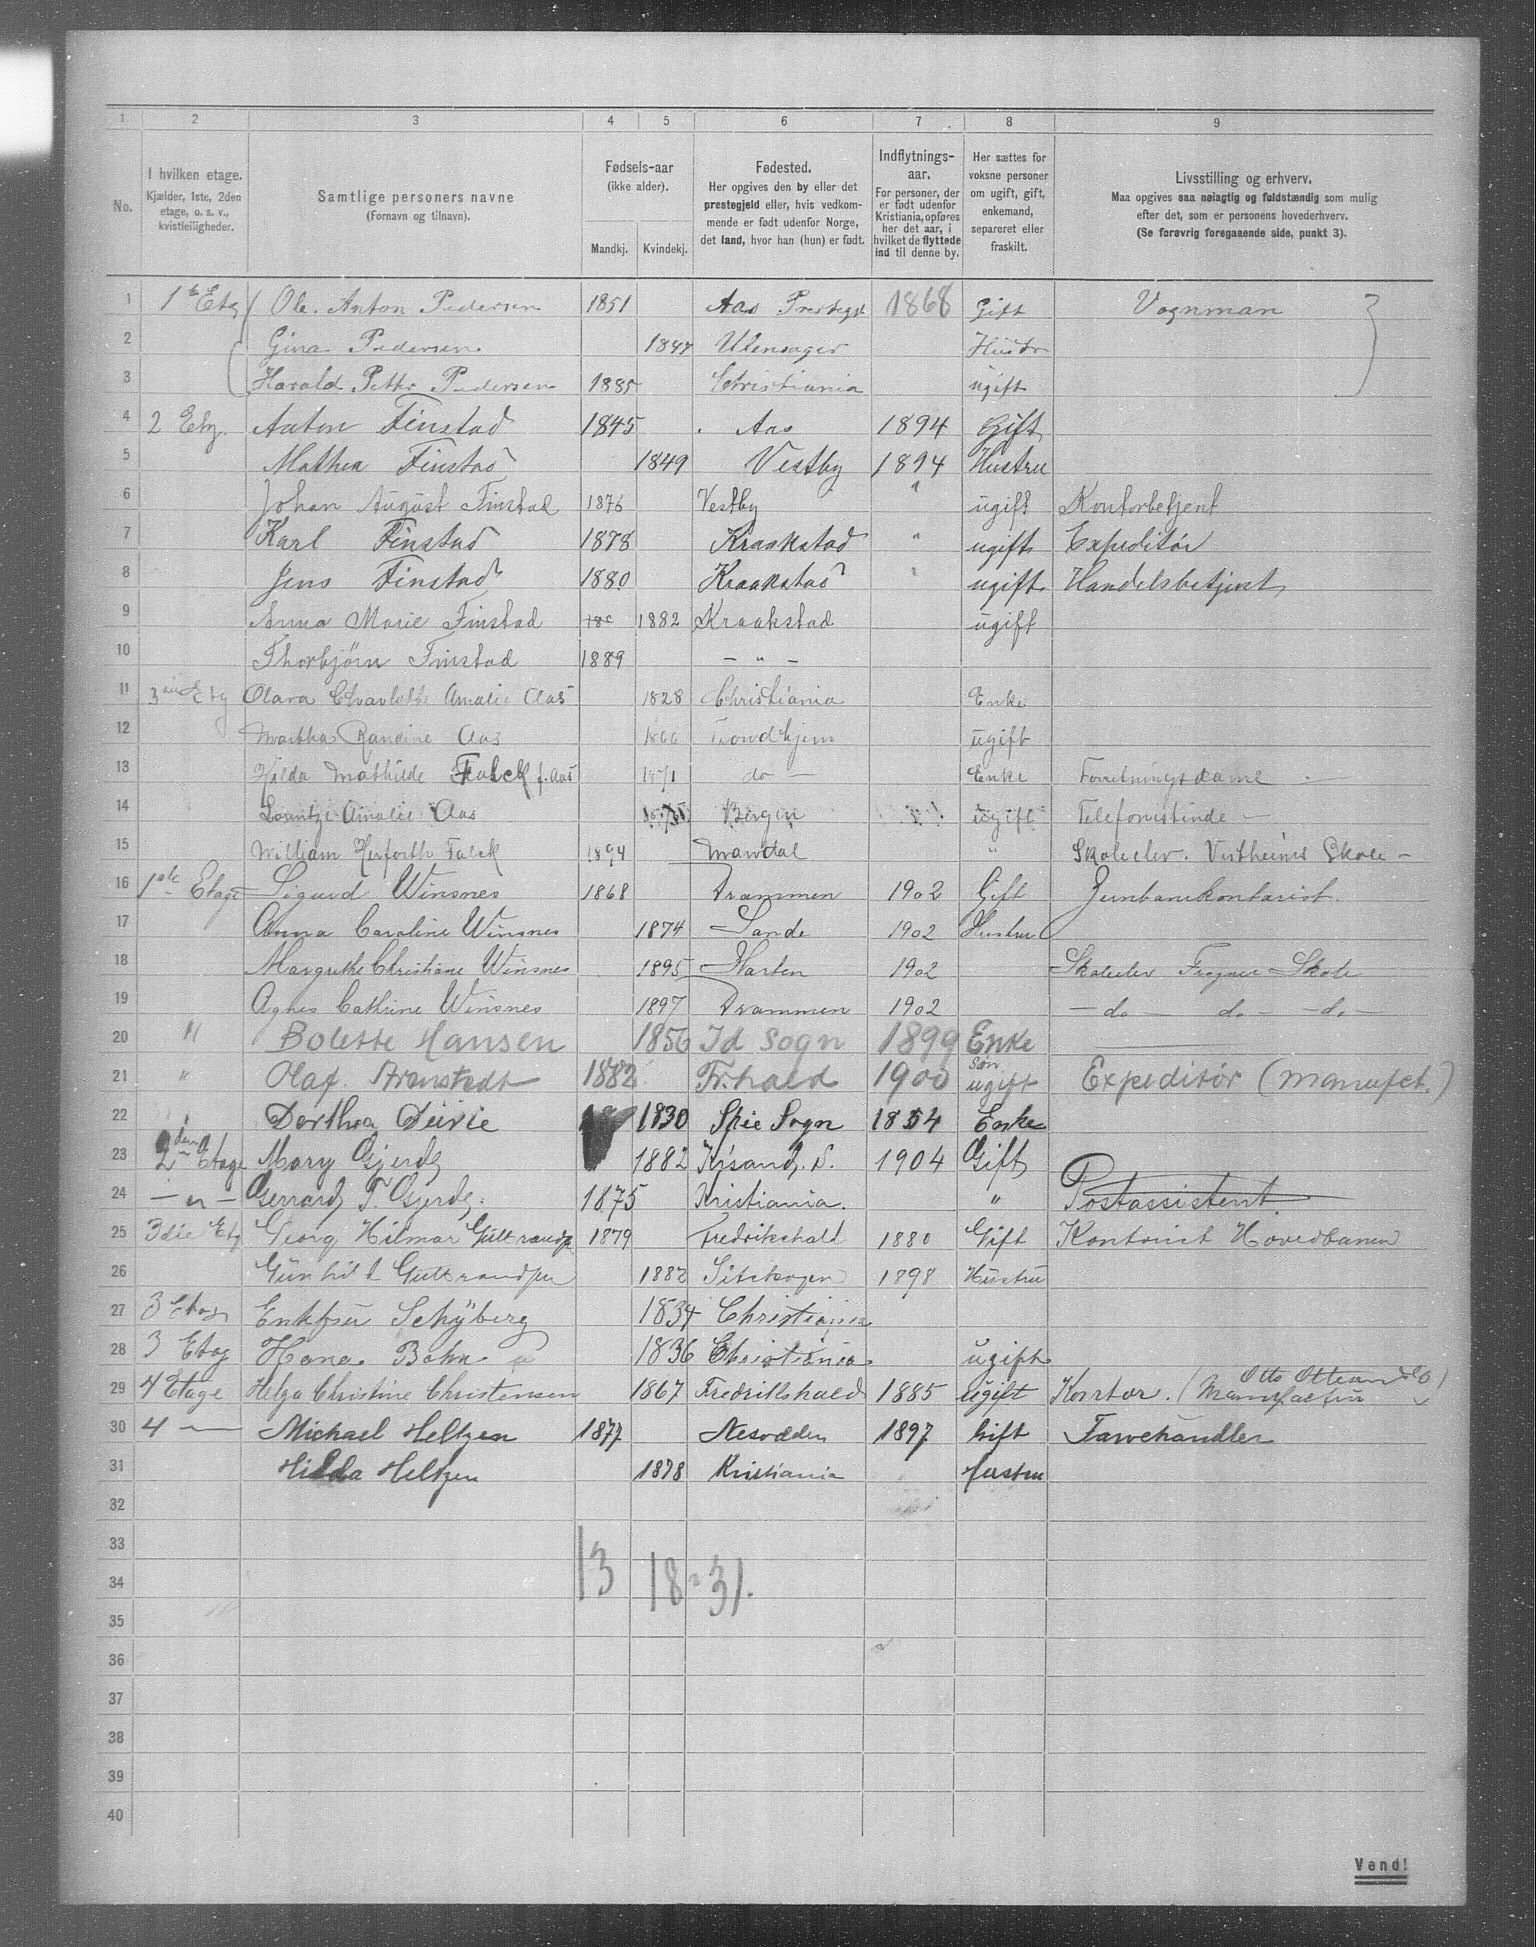 1 2 3 4 5 6 7 8 9
No.
I hvilken etage.
Kjælder, 1ste, 2den etage, o. s. v., kvistleiligheder.
Samtlige personers navne
(Fornavn og tilnavn).
Fødsels-aar
(ikke alder).
Mandkj. Kvindekj.
Fødested.
Her opgives den by eller det præstegjeld eller, hvis vedkommende er født udenfor Norge, det land, hvor han (hun) er født.
Indflytnings-aar.
For personer, der er født udenfor Kristiania, opføres her det aar, i hvilket de flyttede ind til denne by.
Her sættes for voksne personer om ugift, gift, enkemand, separeret eller fraskilt.
Livsstilling og erhverv.
Maa opgives saa nøiagtig og fuldstændig som mulig efter det, som er personens hovederhverv.
(Se forøvrig foregaaende side, punkt 3).
1 1ste Etg Ole Anton Pedersen 1851 Aas Prestegd 1868 Gift Vognman
2 Gina Pedersen 1847 Ullensager Hustr
3 Harald Petter Pedersen 1885 Christiania ugift
4 2 Etg. Anton Finstad 1845 Aas 1894 Gift
5 Mathea Finstad 1849 Vestby 1894 Hustru
6 Johan August Finstad 1876 Vestby " ugift Kontorbetjent
7 Karl Finstad 1878 Kraakstad " ugift Expeditør
8 Jens Finstad 1880 Kraakstad " ugift Handelsbetjent
9 Anna Marie Finstad 1882 Kraakstad ugift
10 Thorbjørn Finstad 1889 — " —
11 3die Etg Olava Charlotte Amalie Aas 1828 Christiania Enke
12 Martha Randine Aas 1866 Trondhjem ugift
13 Hilda Mathilde Falck f. Aas 1871 do — Enke Forretningsdame —
14 Lorentze Amalie Aas Bergen ugift Telefonistinde —
15 William Herforth Falck 1894 Mandal " Skoleelev. Vestheims Skole —
16 1ste Etage Sigurd Winsnes 1868 Drammen 1902 Gift Jernbanekontorist.
17 Anna Caroline Winsnes 1874 Sande 1902 Hustru
18 Margrethe Christiane Winsnes 1895 Horten 1902 Skoleelev Frogner Skole
19 Agnes Cathrine Winsnes 1897 Drammen 1902 — do — do — do —
20 " Bolette Hansen 1856 Id Sogn 1899 Enke
21 " Olaf Arenstedt 1882 Fr.hald 1900 Søn ugift Expeditör (Manufct.)
22 " Dorthea 1830 Sogn 1854 Enke
23 2den Etage Mary Gjerdz 1882 Krisand. S. 1904 Gift
24 — " — Gerrard T. Gjerdz. 1875 Kristiania. " Postassistent.
25 3die Etg Georg Hilmar Guttrandsen 1879 Fredrikshald 1880 Gift Kontorist Hovedbanen
26 Gunhild Guttrandsen 1882 Sitskogen 1898 Hustru
27 3 Etag Enkefru Schyberg 1834 Christiania
28 3 Etag Hana Bohn 1836 Christiania ugift
29 4 Etage Helga Christine Christensen 1867 Fredrikshald 1885 ugift Kontor. (Otto Ottesen & Co Manufactur)
30 4 — Michael Heltzen 1877 Nesodden 1897 Gift Farvehandler
31 Hilda Heltzen 1878 Kristiania Hustru
32
33
34 13 18 = 31.
35
36
37
38
39
40
Vend!